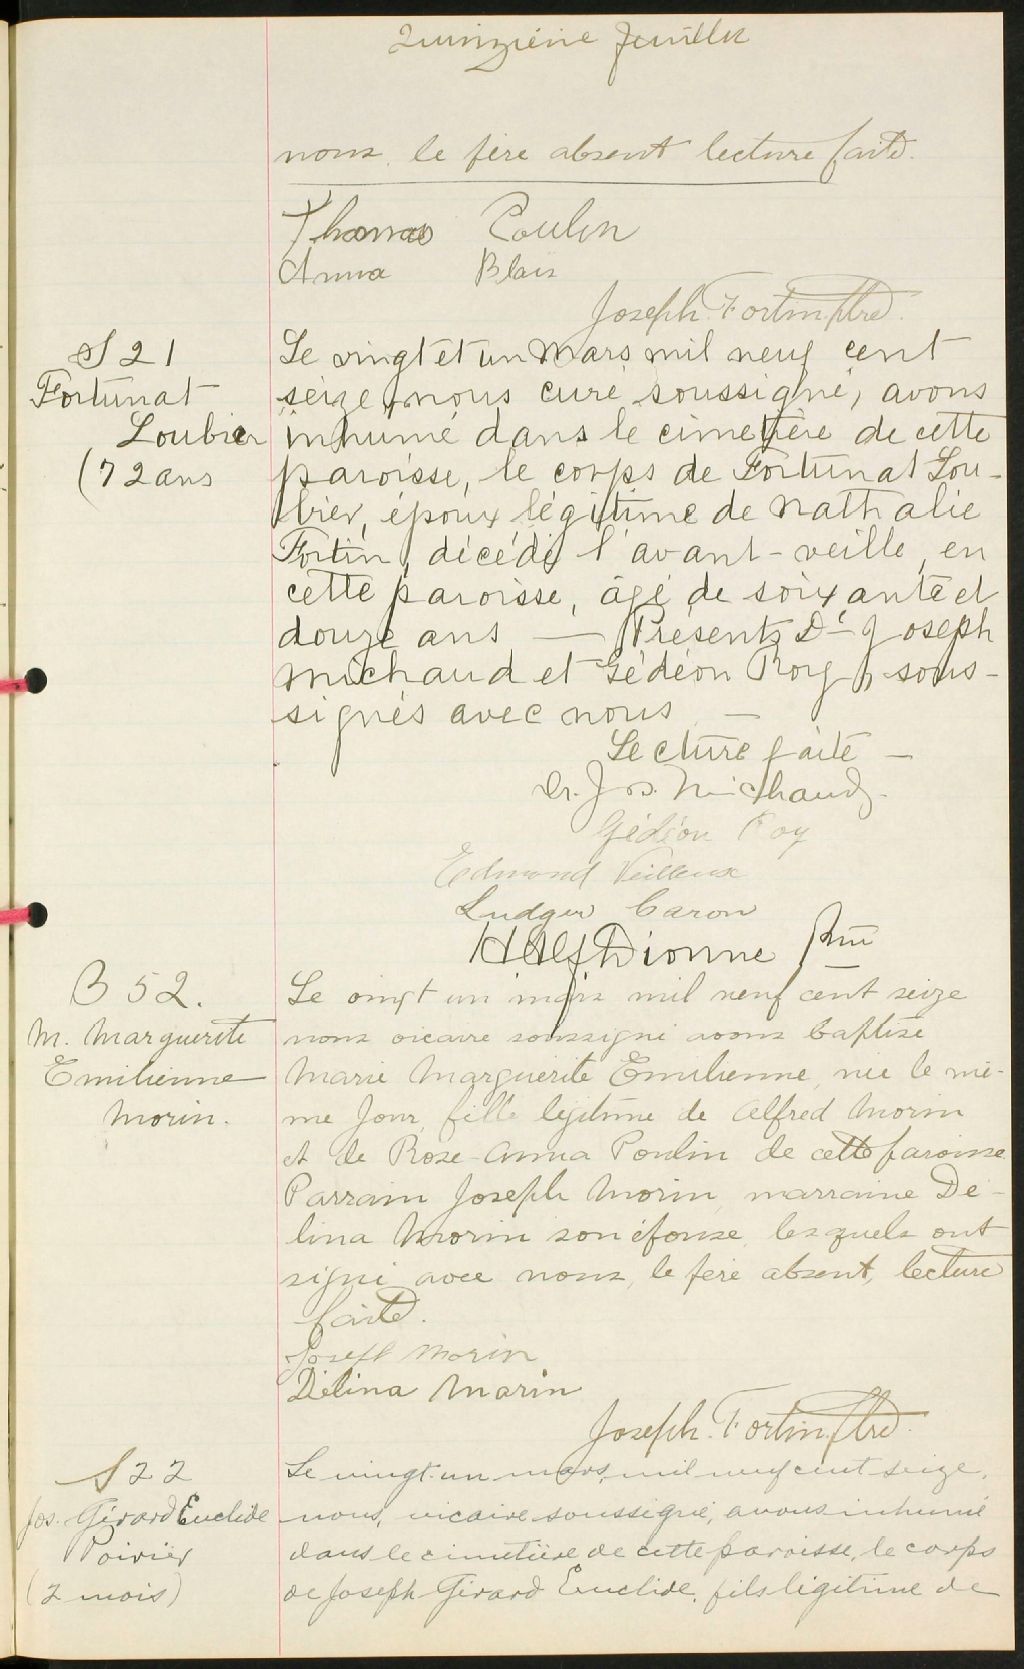 Quinzième feuillet
nous, le père absent lecture faite.
Thomas Poulin
Anna Blais
Joseph Fortin ptre.
S 21
Fortunat
Loubier
(72 ans
Le vingt et un Mars mil neuf cent
seize, nous curé soussigné, avons
inhumé dans le cimetière de cette
paroisse, le corps de Fortunat Lou-
bier, époux légitime de Nathalie
Fortin, décédé l'avant-veille, en
cette paroisse, âgé de soixante et
douze ans — Présents Dr Joseph
Michaud et Gédéon Roy, sous-
signés avec nous —
Lecture faite —
Dr. Jos. Michaud.
Gédéon Roy
Edmond Veilleux
Ludger Caron
Dionne
B 52.
M. Marguerite
Emilienne
Morin.
Le vingt un mars mil neuf cent seize
nous vicaire soussigné avons baptisé
Marie Marguerite Emilienne, née le mê-
me jour, fille légitime de Alfred Morin
et de Rose-Anna Poulin de cette paroisse
Parrain Joseph Morin, marraine Dé-
lina Morin son épouse, lesquels ont
signé avec nous, le père absent, lecture
faite.
Joseph Morin
Délina Morin
Joseph Fortin ptre.
S 22
Jos. Girard Euclide
Poirier
(2 mois)
Le vingt-un mars, mil neuf cent seize,
nous, vicaire soussigné, avons inhumé
dans le cimetière de cette paroisse, le corps
de Joseph Girard Euclide, fils légitime de